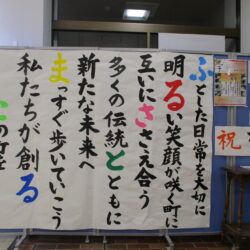 ふとした日常を大切に
明るい笑顔が咲く町に
互いにささえ合う
多くの伝統とともに
新たな未来へ
まっすぐ歩いていこう
私たちが創る
この町を
祝